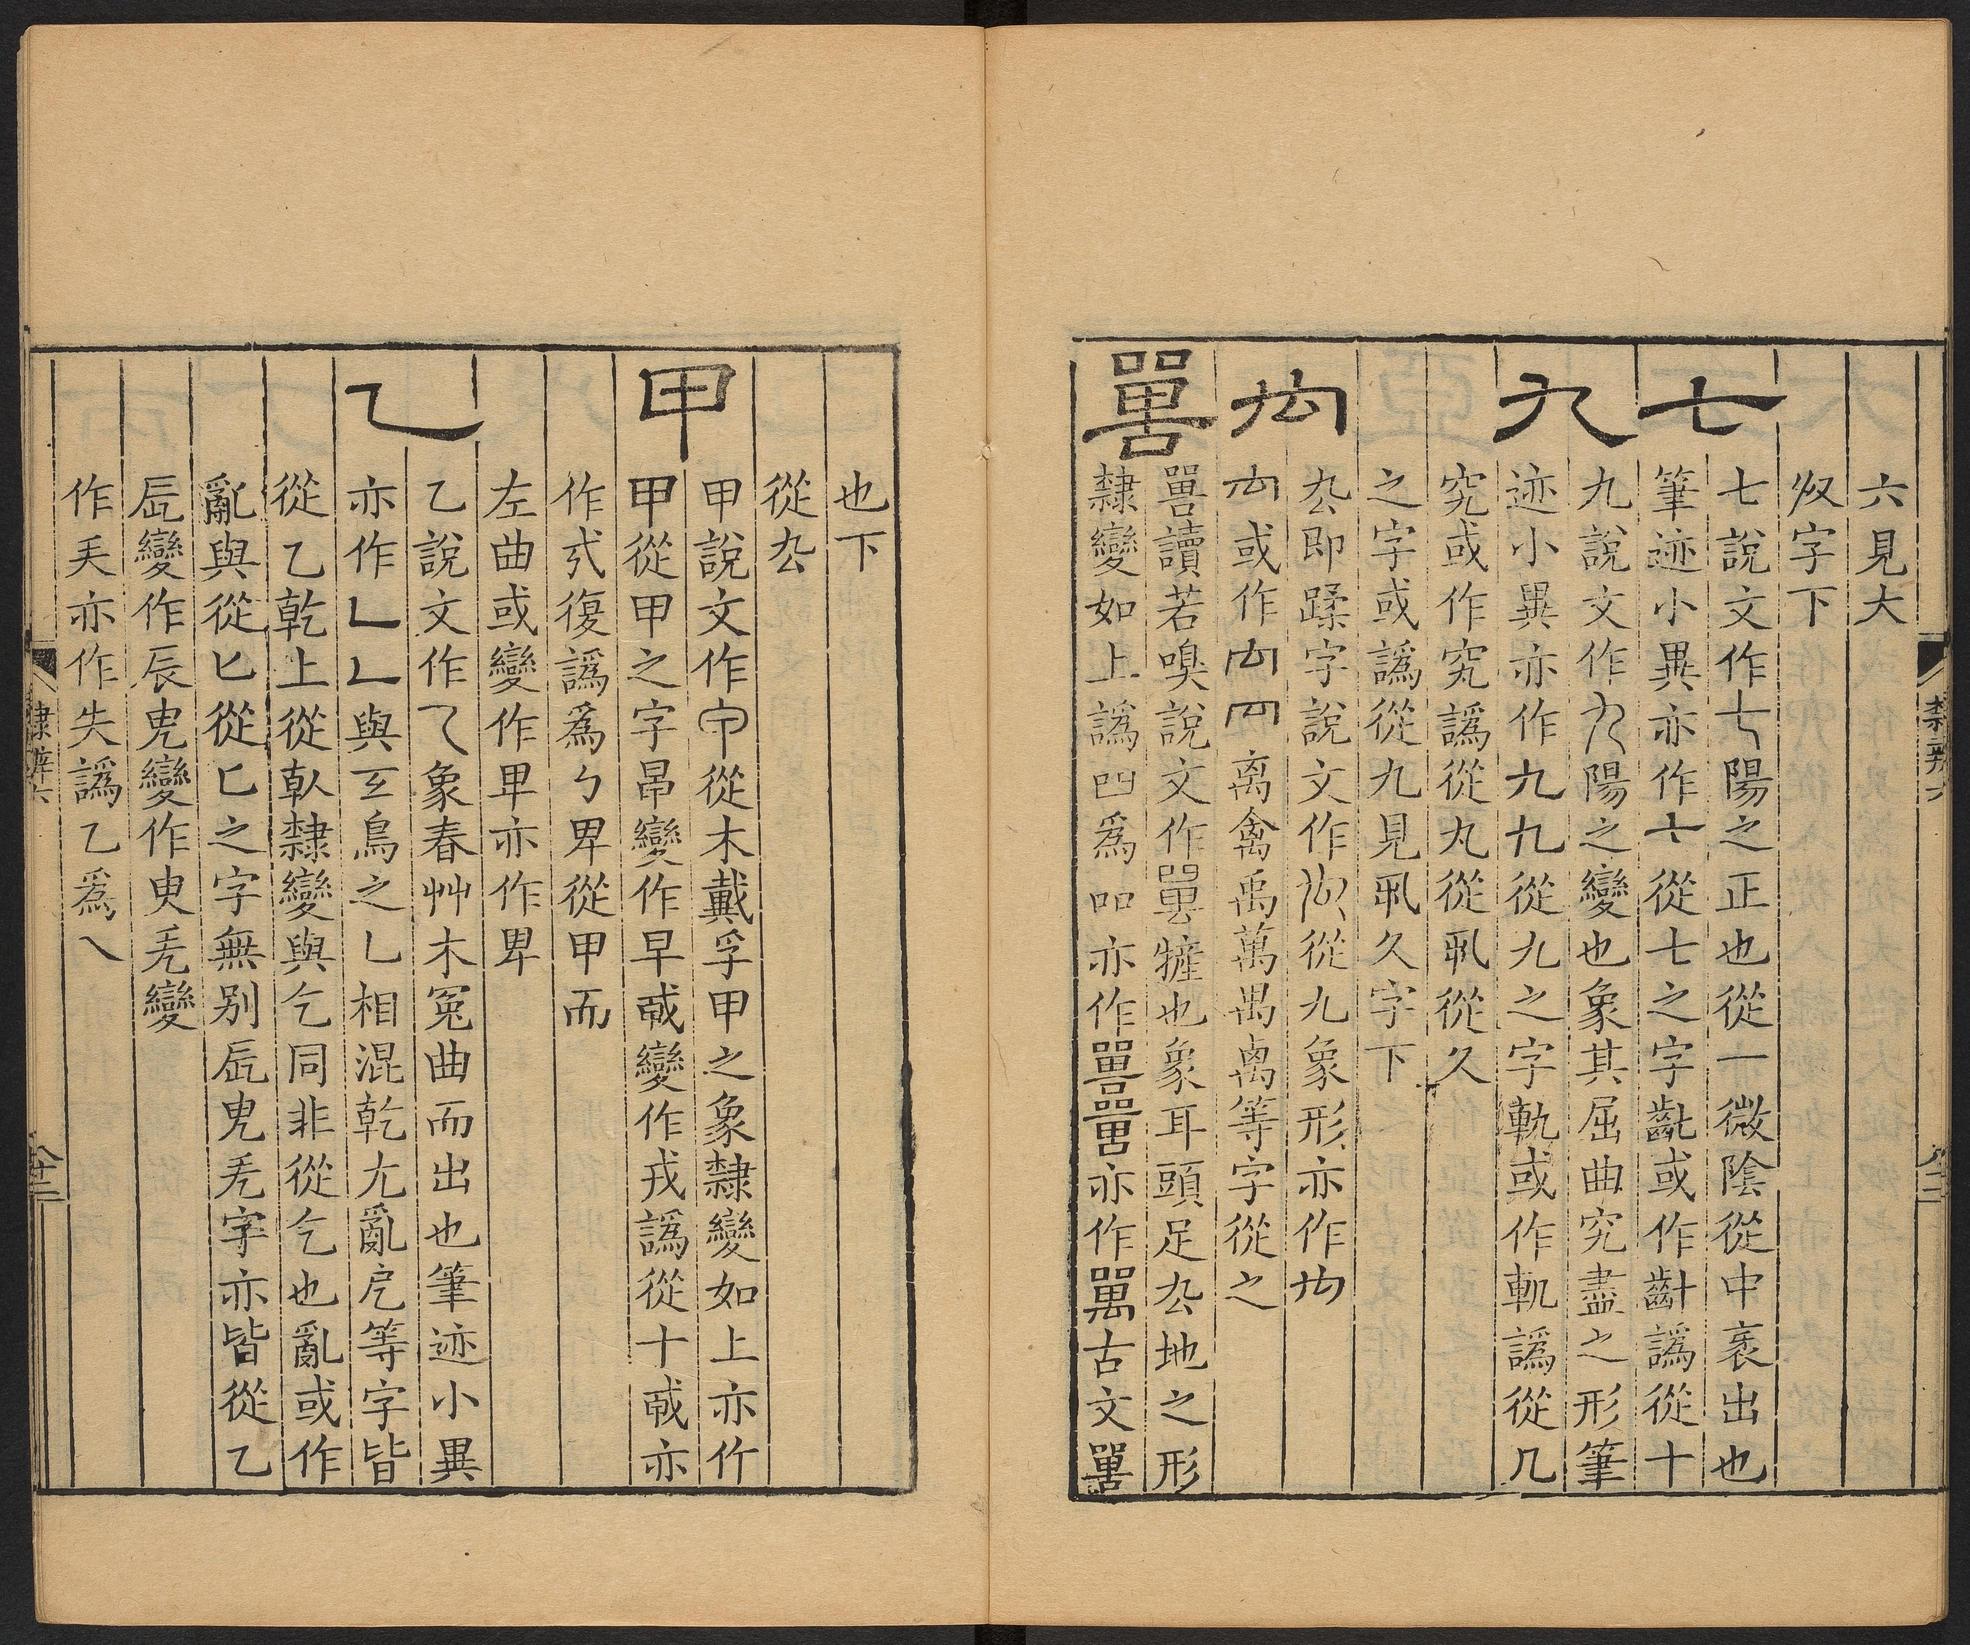 六見大
攷字下
七
七說文作陽之正也從一微陰從中衺出也
筆迹小異亦作從七之字齔或作齗譌從十
九
九說文作陽之變也象其屈曲究盡之形筆
迹小異亦作九九從九之字軌或作軏譌從几
究或作究譌從丸從丮從久
之字或譌從九見丮久字下
禸
厹即蹂字說文作從九象形亦作禸
或作离禽禹萬禺禼等字從之
嘼
嘼讀若嗅說文作嘼㹌也象耳頭足厹地之形
隸變如上譌為吅亦作嘼嘼亦作古文嘼
隸辨六
也下
從厹
甲
甲說文作從木戴孚甲之象隸變如上亦作
甲從甲之字𣅀變作早𢧢變作戎譌從十𢧢亦
作弐復譌爲卑從甲而
左曲或變作甲亦作卑
乙
乙說文作象春艸木冤曲而出也筆迹小異
亦作與玄鳥之乚相混乾尤亂戹等字皆
從乙乾上從倝隸變與乞同非從乞也亂或作
亂與從匕從匚之字無別㫳㕙字亦皆從乙
變作辰變作㬰变
作𡗗亦作失譌乙爲乀
隸辨六